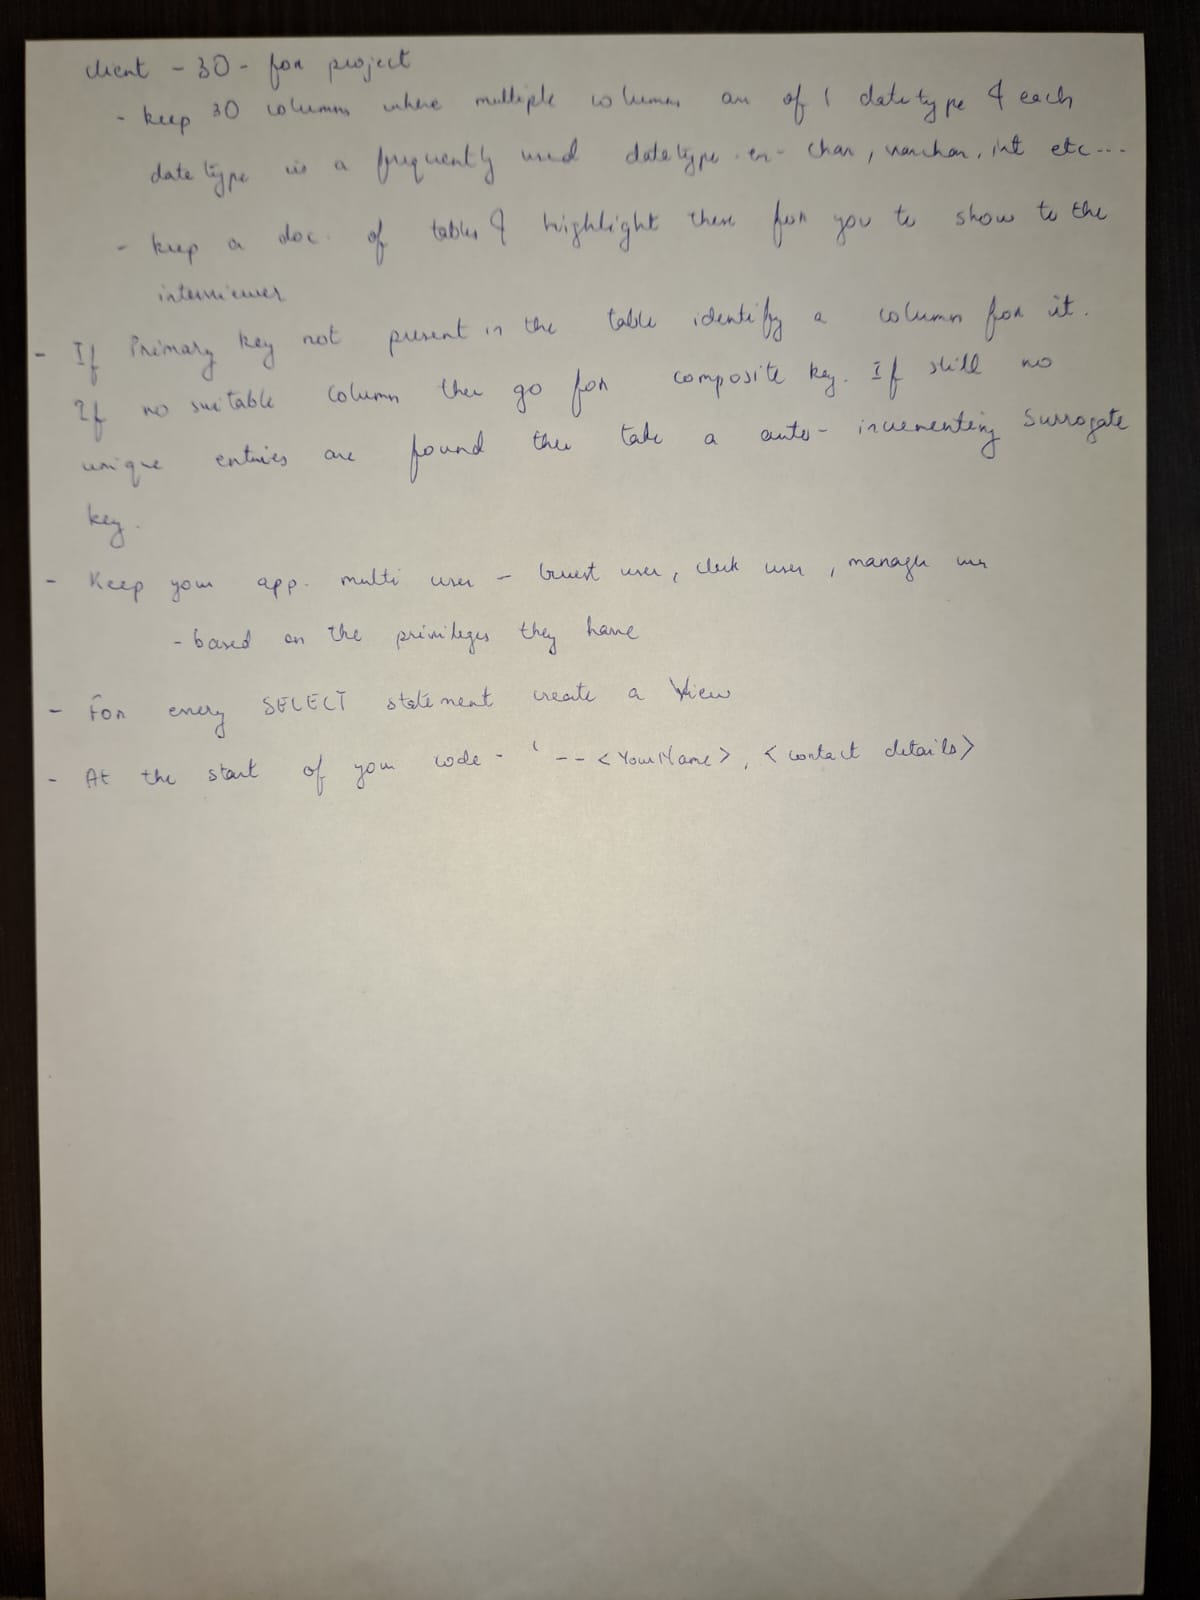 client - 30 - for project
- keep 30 columns where multiple columns are of 1 datatype & each
datatype is a frequently used datatype. ex- char, varchar, int etc...
- keep a doc. of tables & highlight these for you to show to the
interviewer
- If Primary key not present in the table identify a column for it.
If no suitable column then go for composite key. If still no
unique entries are found then take a auto-incrementing surrogate
key.
- Keep your app. multi user - Guest user, clerk user, manager user
- based on the privileges they have
- For every SELECT statement create a View
- At the start of your code - ' -- <YourName>, <contact details>